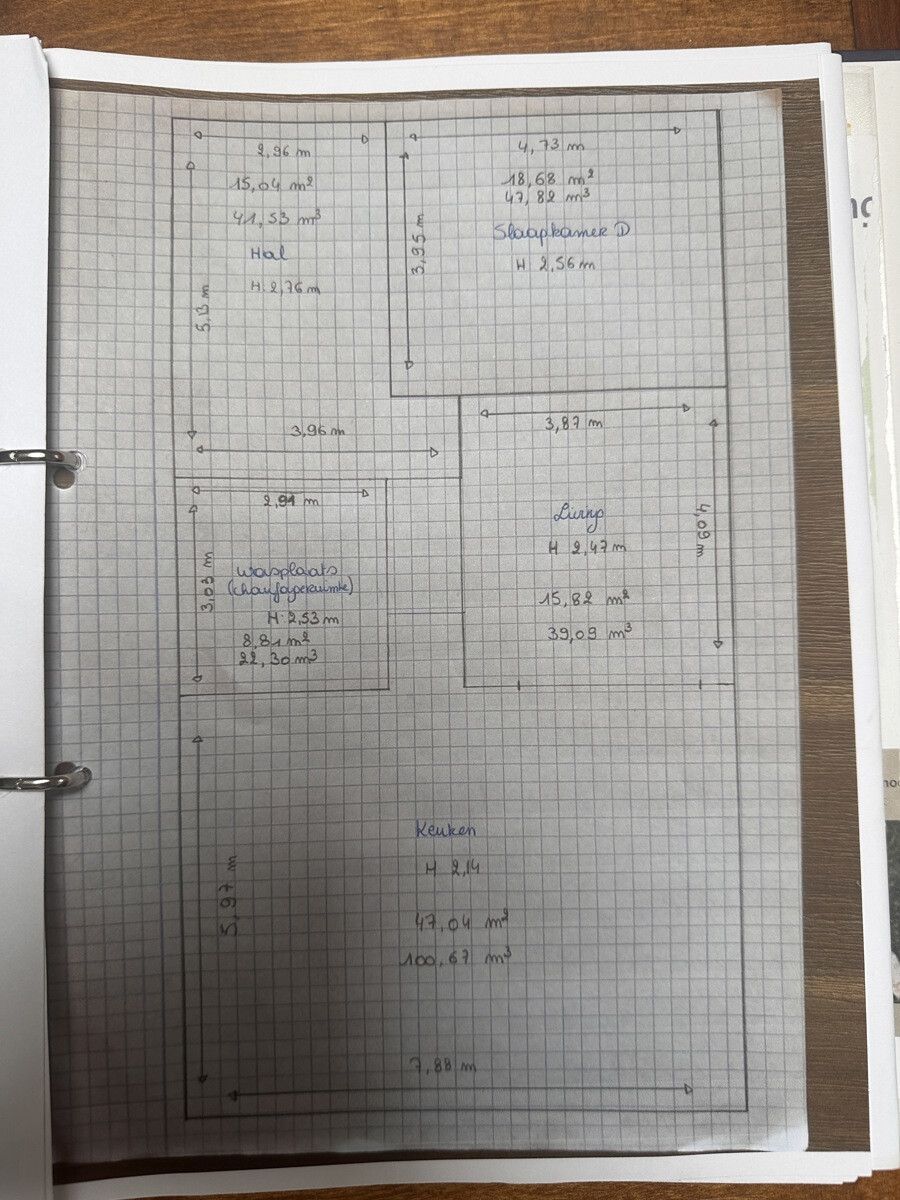 2,96 m
15,04 m²
41,53 m³
Hal
H: 2,76 m
5,13 m
3,96 m
4,73 m
18,68 m²
47,82 m³
Slaapkamer D
H 2,56 m
3,95 m
3,87 m
Living
H 2,47 m
15,82 m²
39,09 m³
4,09 m
2,91 m
3,03 m
Wasplaats
(chauffageruimte)
H: 2,53 m
8,81 m²
22,30 m³
Keuken
H 2,14
47,04 m²
100,67 m³
5,97 m
7,88 m